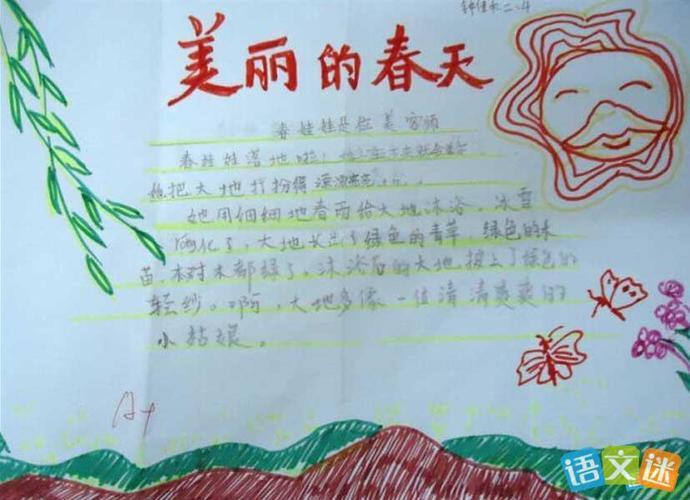 二.4
美丽的春天
春娃娃是位美容师
春娃娃落地啦,
她把大地打扮得漂漂亮亮...
她用细细地春雨给大地沐浴。冰雪
化了,大地长出了绿色的青草,绿色的禾
苗,树木都绿了。沐浴后的大地披上了绿色的
轻纱。啊,大地多像一位清清爽爽的
小姑娘。
A+
语文迷